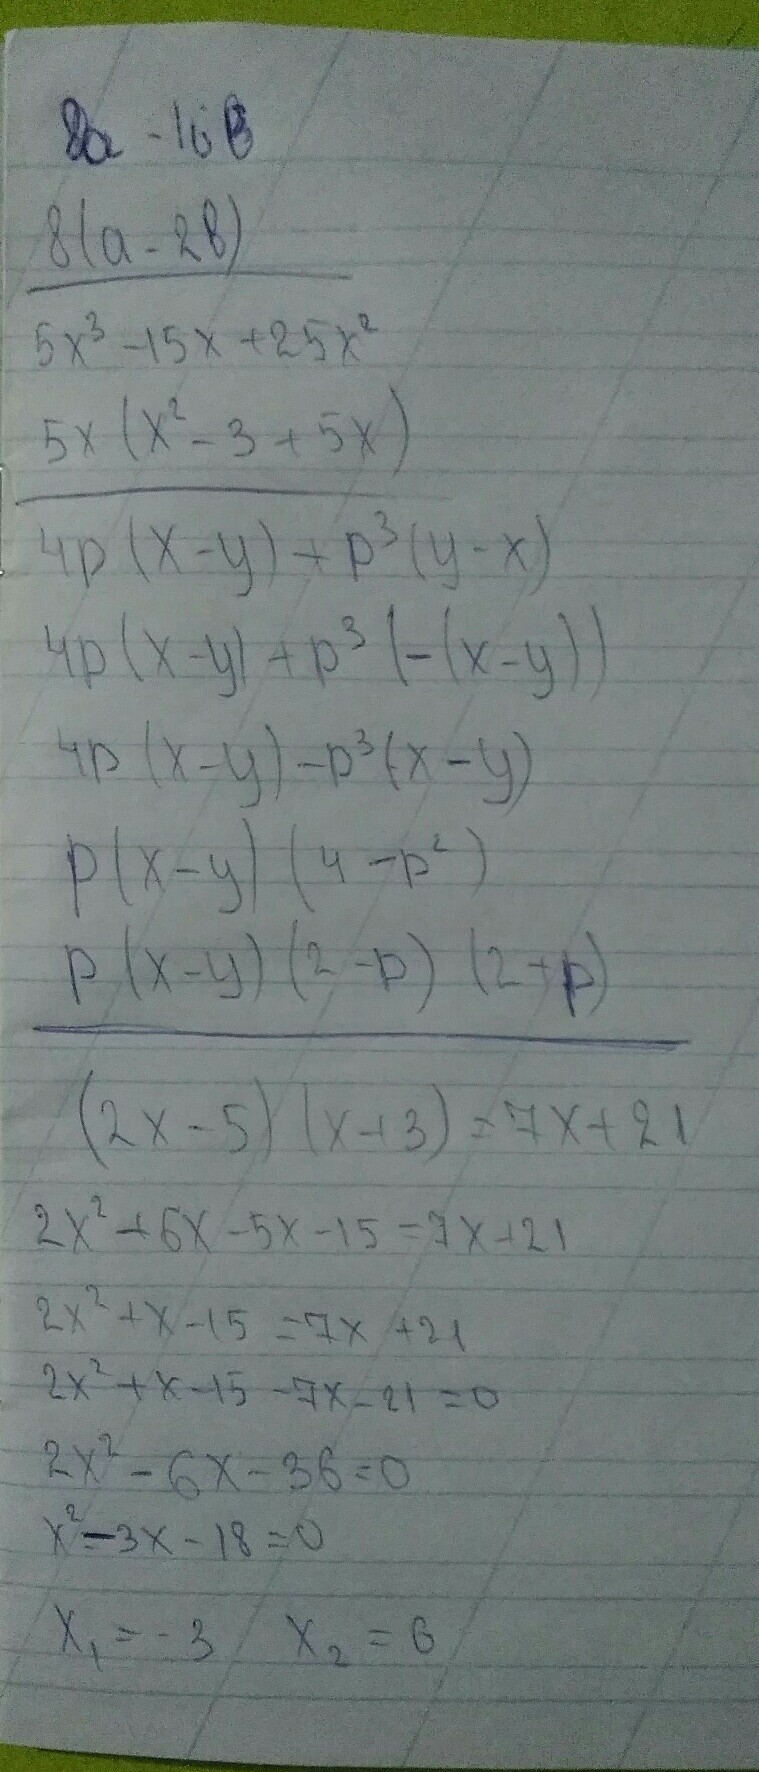 8a - 16B
8(a - 2B)
5x³ - 15x + 25x²
5x (x² - 3 + 5x)
4p (x-y) + p³(y-x)
4p (x-y) + p³ (-(x-y))
4p (x-y) - p³(x-y)
p(x-y) (4-p²)
p (x-y) (2-p) (2+p)
(2x-5) (x+3) = 7x+21
2x² + 6x - 5x - 15 = 7x + 21
2x² + x - 15 = 7x + 21
2x² + x - 15 - 7x - 21 = 0
2x² - 6x - 36 = 0
x² - 3x - 18 = 0
x₁ = -3 x₂ = 6